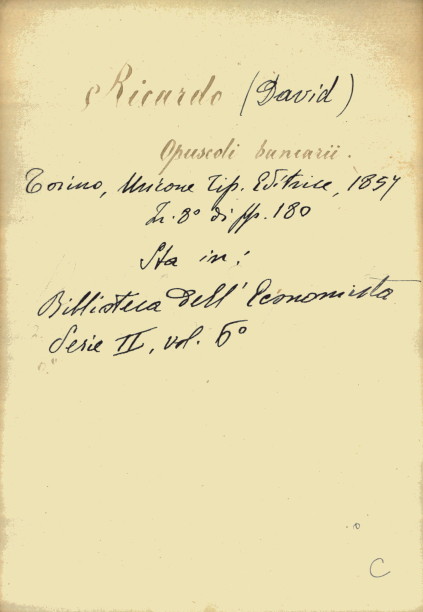 Ricardo (David)
Opuscoli bancarii.
Torino, Unione Tip. Editrice, 1857
In. 8° di pp. 180
Sta in:
Biblioteca dell'Economista
Serie II, vol. 6°
C